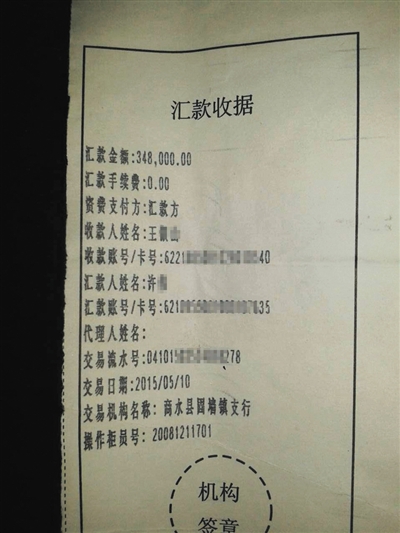 汇款收据
汇款金额:348,000.00
汇款手续费:0.00
资费支付方:汇款方
收款人姓名:王
收款账号/卡号:6221 40
汇款人姓名:许
汇款账号/卡号:621 35
代理人姓名:
交易流水号:0410 278
交易日期:2015/05/10
交易机构名称: 商水县固墙镇支行
操作柜员号: 20081211701
机构
签章